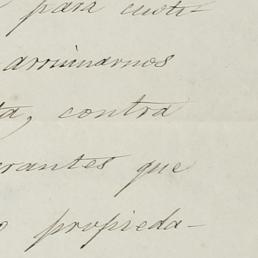 para cuoti-
arruinarnos
ta, contra
rantes que
o propieda-